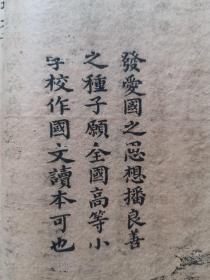 發愛國之思想播良善
之種子願全國高等小
学校作國文讀本可也